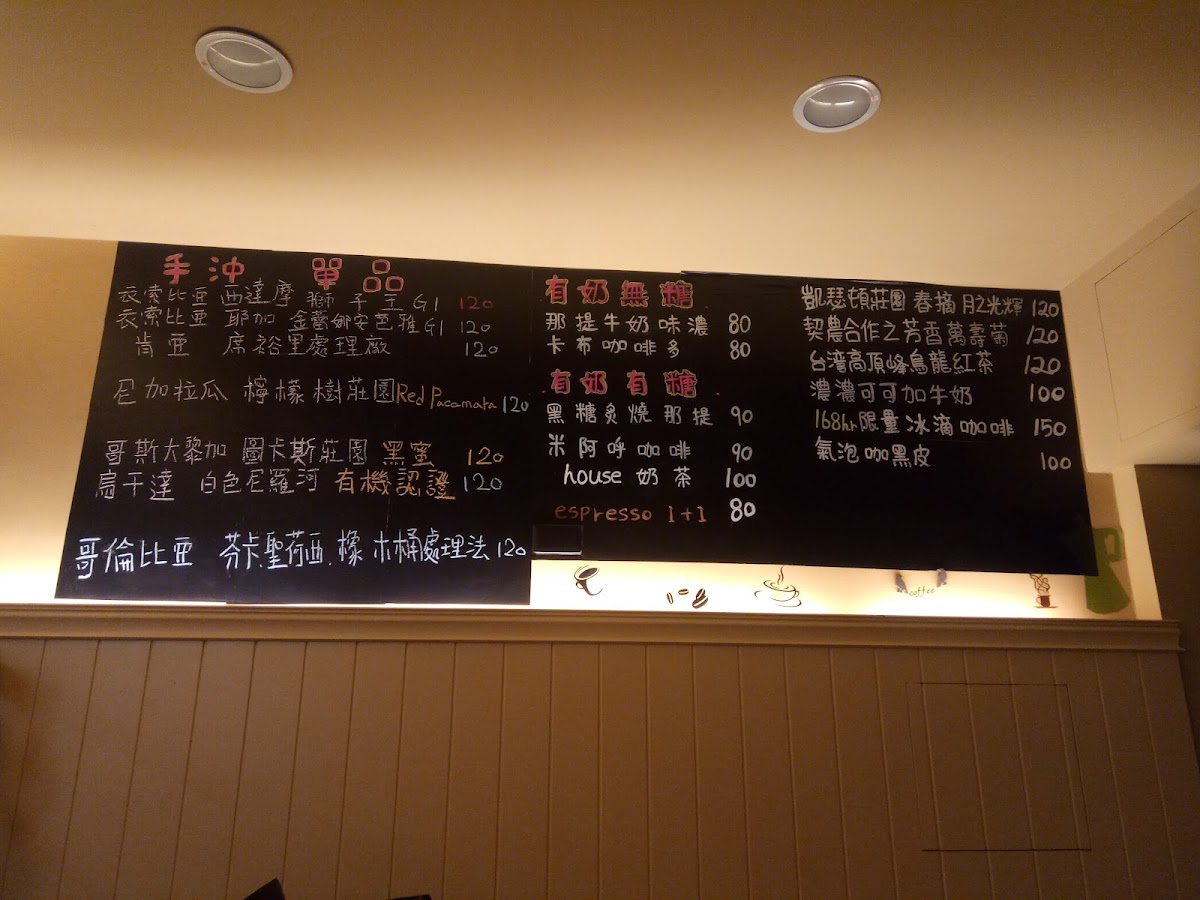 手沖 單品
衣索比亞 西達摩 獅子王 G1 120
衣索比亞 耶加 金蕾娜安芭雅G1 120
肯亞 席裕里處理廠 120
尼加拉瓜 檸檬樹莊園Red Pacamara 120
哥斯大黎加 圖卡斯莊園 黑蜜 120
烏干達 白色尼羅河 有機認證 120
哥倫比亞 芬卡聖荷西 橡木桶處理法 120
有奶無糖
那提牛奶味濃 80
卡布咖啡多 80
有奶有糖
黑糖炙燒那提 90
米阿呼咖啡 90
house 奶茶 100
espresso 1+1 80
凱瑟頓莊園 春摘 月之光輝 120
契農合作之芳香萬壽菊 120
台湾高頂峰烏龍紅茶 120
濃濃可可加牛奶 100
168hr限量冰滴咖啡 150
氣泡咖黑皮 100
coffee